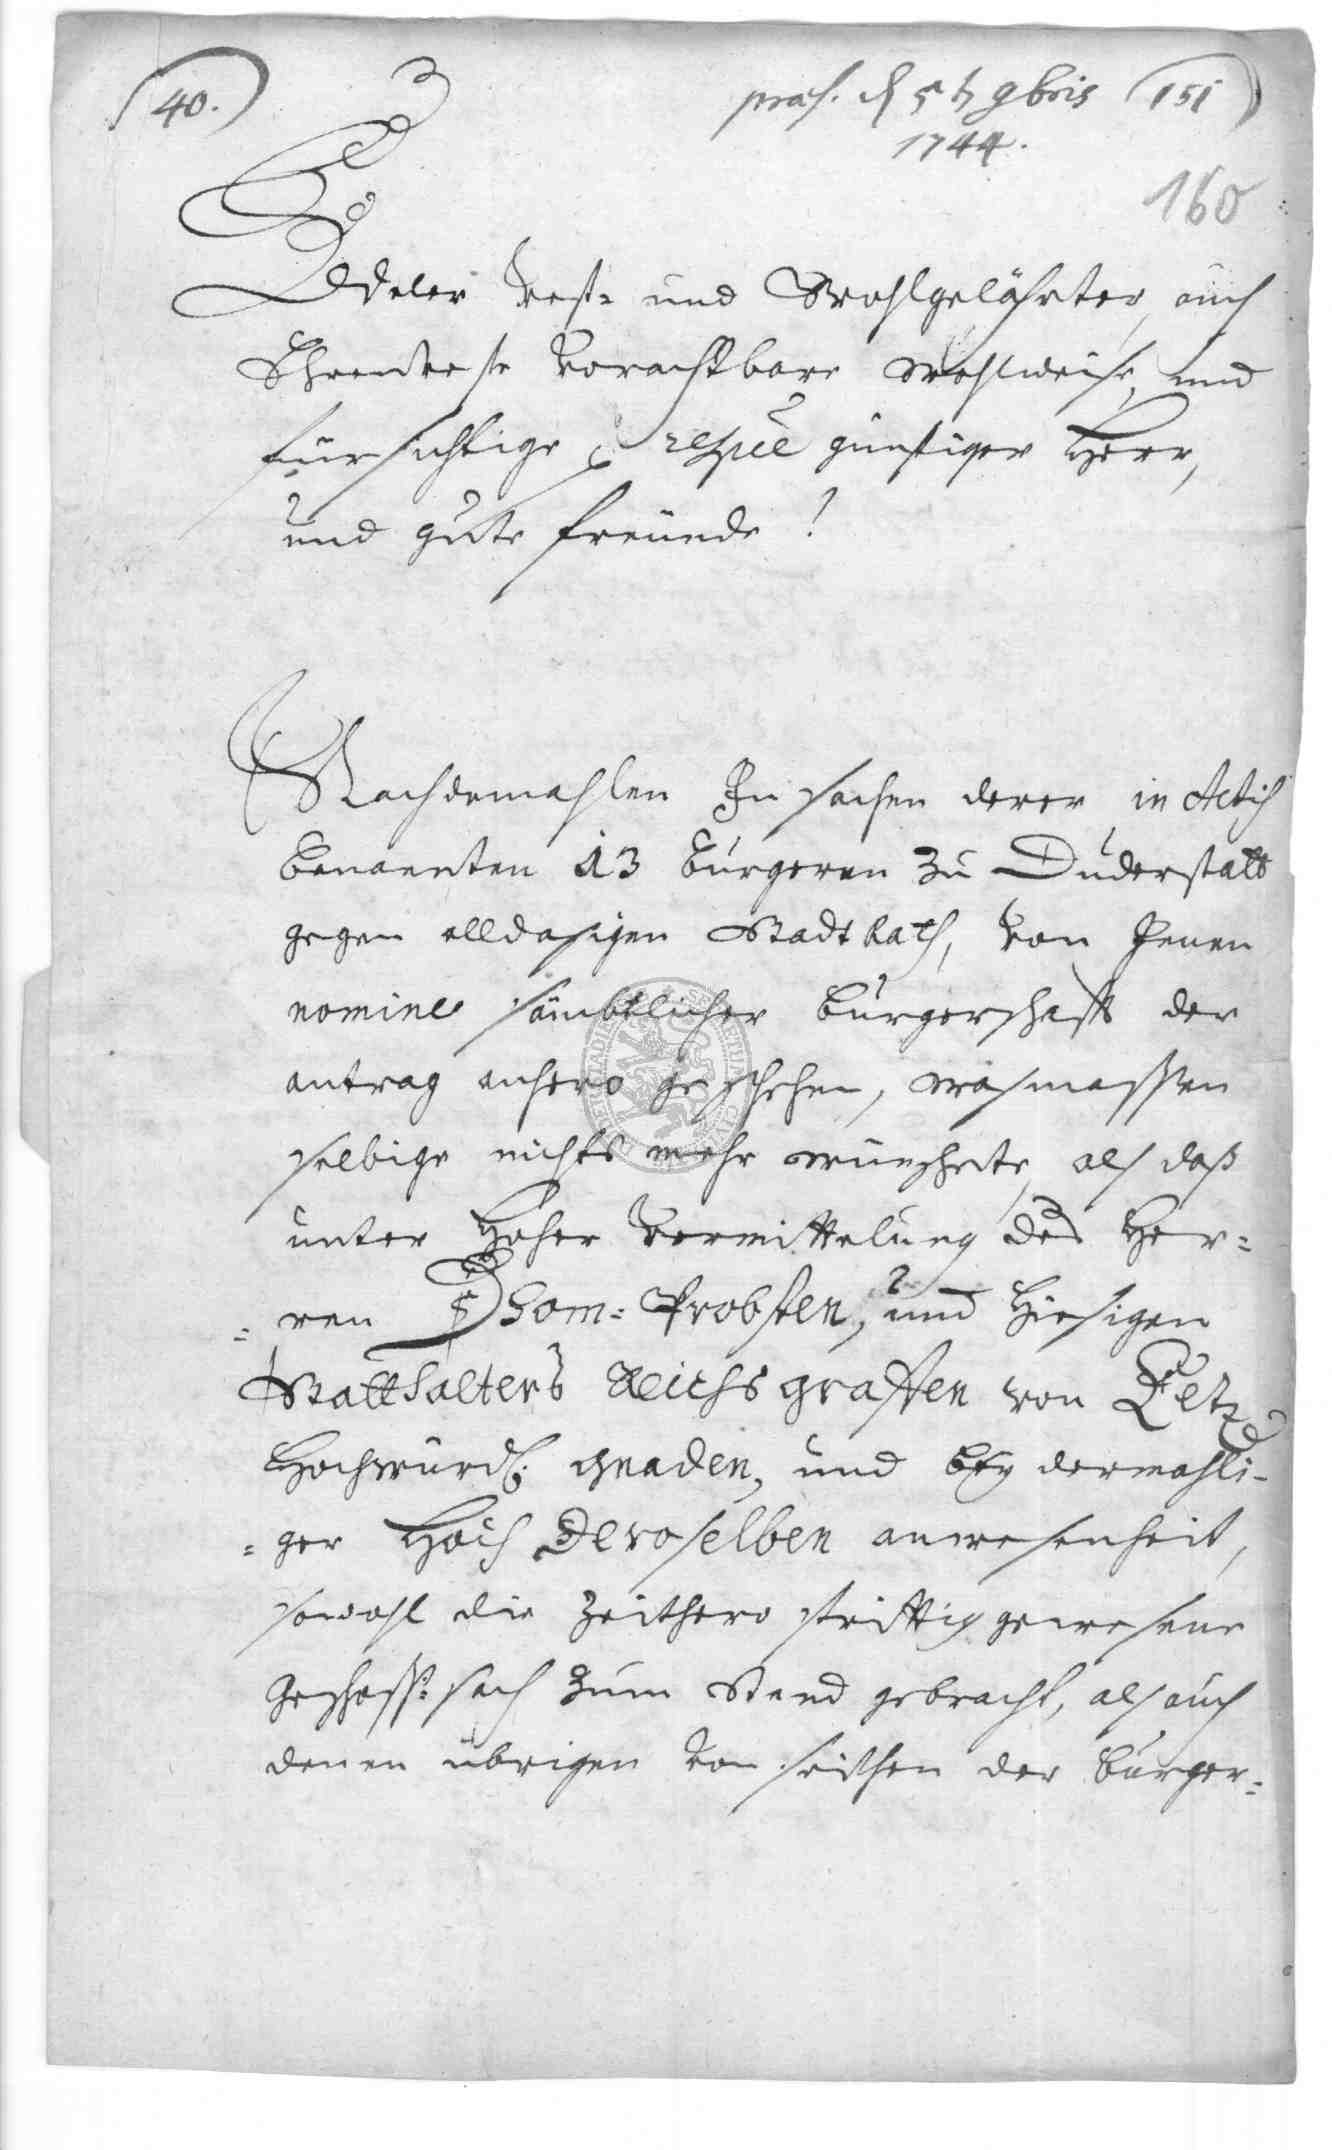 40.
præs. d 5t 9bris 151
1744.
160
Edeler Vest- und Wohlgelährter, auch
Ehrenveste Vorachtbare wohlweise, und
fürsichtige respvè günstiger Herr,
und gute freünde!
Nachdemahlen In sachen derer in Actis
benanten 13 bürgeren zu Duderstatt
gegen alldasigen StadtRath, von Jenen
nomine sämbtlicher bürgerschafft der
antrag anhero geschehen, wasmassen
selbige nichts mehr wünschete, als daß
unter Hoher Vermittelung des Her=
=ren Dhom=Probsten, und hiesigen
Statthalters Reichsgraffen von Eltz
Hochwürdl. Gnaden, und bey dermahli-
=ger Hoch Deroselben anwesenheit,
sowohl die zeithero strittig gewesene
geschoss=sach zum stand gebracht, als auch
denen übrigen von seithen der bürger=